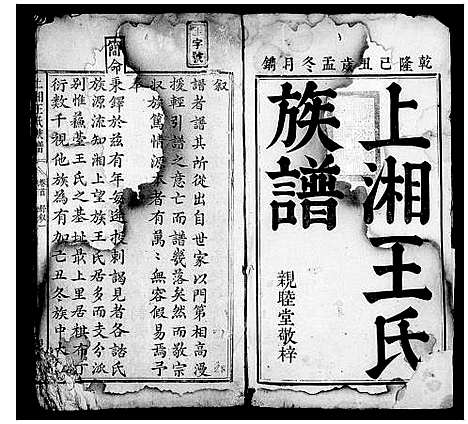 乾隆己丑歲孟冬月鐫
上湘王氏
族譜
親睦堂敬梓
字號
敘
譜者譜其所從出自世家以門第相高漫
援輕引譜之意亡而譜幾落矣然而敬宗
收族篤情源本者有萬〻無容假易焉予
奉
簡命秉鐸於茲有年矣
投刺謁見者各諸氏
族源流知湘上望族王氏居多而支分派
別惟
王氏之基址最上里居棋布丁
衍數千視他族為有加己丑冬族中大